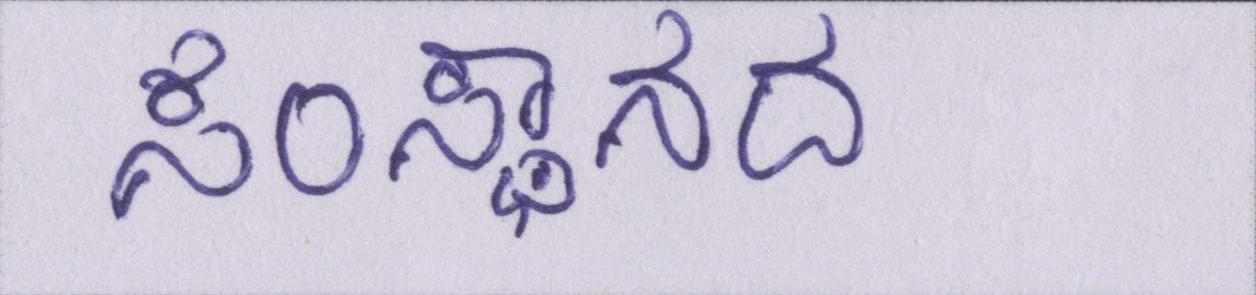 ಸಂಸ್ಥಾನದ